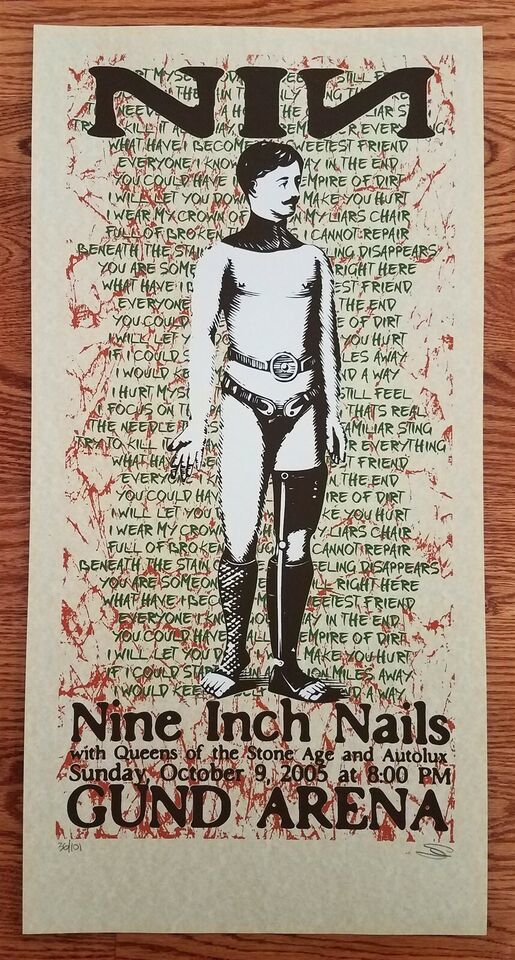 NIN
STILL
THE
KILL IT
WHAT HAVE I BECOME SWEETEST FRIEND
EVERYONE I KNOW AWAY IN THE END
YOU COULD HAVE EMPIRE OF DIRT
I WILL LET YOU DOWN MAKE YOU HURT
I WEAR MY CROWN OF MY LIARS CHAIR
FULL OF BROKEN I CANNOT REPAIR
BENEATH THE STAIN DISAPPEARS
YOU ARE RIGHT HERE
WHAT HAVE I FRIEND
EVERYONE THE END
YOU COULD OF DIRT
I WILL LET YOU HURT
IF I COULD AWAY
I WOULD KE D A WAY
I HURT MYSE STILL FEEL
I FOCUS ON THATS REAL
THE NEEDLE FAMILIAR STING
TRY TO KILL EVERYTHING
WHAT HAV FRIEND
EVERYO THE END
YOU COULD HA OF DIRT
I WILL LET YOU YOU HURT
I WEAR MY CROWN LIARS CHAIR
FULL OF BROKEN CANNOT REPAIR
BENEATH THE STAIN OF EELING DISAPPEARS
YOU ARE SOMEON RIGHT HERE
WHAT HAVE I BECOM SWEETEST FRIEND
EVERYONE I KNOW AWAY IN THE END
YOU COULD HAVE ALL EMPIRE OF DIRT
I WILL LET YOU D MAKE YOU HURT
IF I COULD START ION MILES AWAY
I WOULD KEE D A WAY
Nine Inch Nails
with Queens of the Stone Age and Autolux
Sunday October 9, 2005 at 8:00 PM
GUND ARENA
36/101